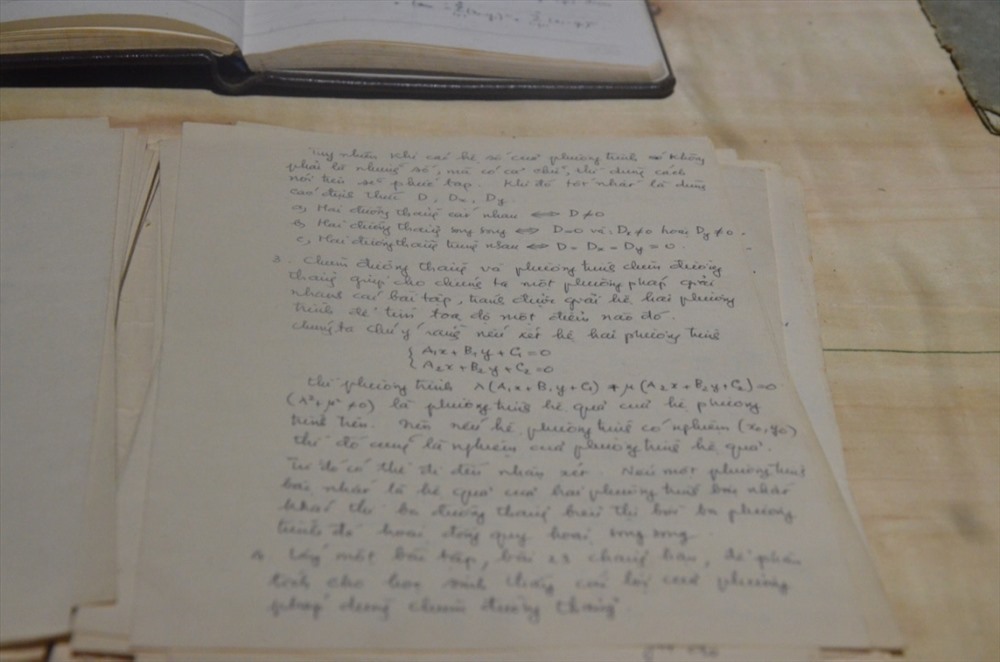 Tuy nhiên khi các hệ số của phương trình không
phải là những số, mà có cả chữ, thì dùng cách
nói trên sẽ phức tạp. Khi đó tốt nhất là dùng
các định thức D, Dx, Dy.
a, Hai đường thẳng cắt nhau ⟺ D ≠ 0
b, Hai đường thẳng song song ⟺ D = 0 và Dx ≠ 0 hoặc Dy ≠ 0.
c, Hai đường thẳng trùng nhau ⟺ D = Dx = Dy = 0.
3. Chùm đường thẳng và phương trình chùm đường
thẳng giúp cho chúng ta một phương pháp giải
nhanh các bài tập, tránh được giải hệ hai phương
trình để tìm tọa độ một điểm nào đó.
Chúng ta chú ý rằng nếu xét hệ hai phương trình
{ A₁x + B₁y + C₁ = 0
{ A₂x + B₂y + C₂ = 0
thì phương trình λ(A₁x + B₁y + C₁) + μ(A₂x + B₂y + C₂) = 0
(λ² + μ² ≠ 0) là phương trình hệ quả của hệ phương
trình trên. Nên nếu hệ phương trình có nghiệm (x₀, y₀)
thì đó cũng là nghiệm của phương trình hệ quả.
Từ đó có thể đi đến nhận xét. Nếu một phương trình
bậc nhất là hệ quả của hai phương trình bậc nhất
khác thì ba đường thẳng biểu thị bởi ba phương
trình đó hoặc đồng quy hoặc song song.
4. Lấy một bài tập, bài 23 chẳng hạn, để phân
tích cho học sinh thấy cái lợi của phương
pháp dùng chùm đường thẳng.